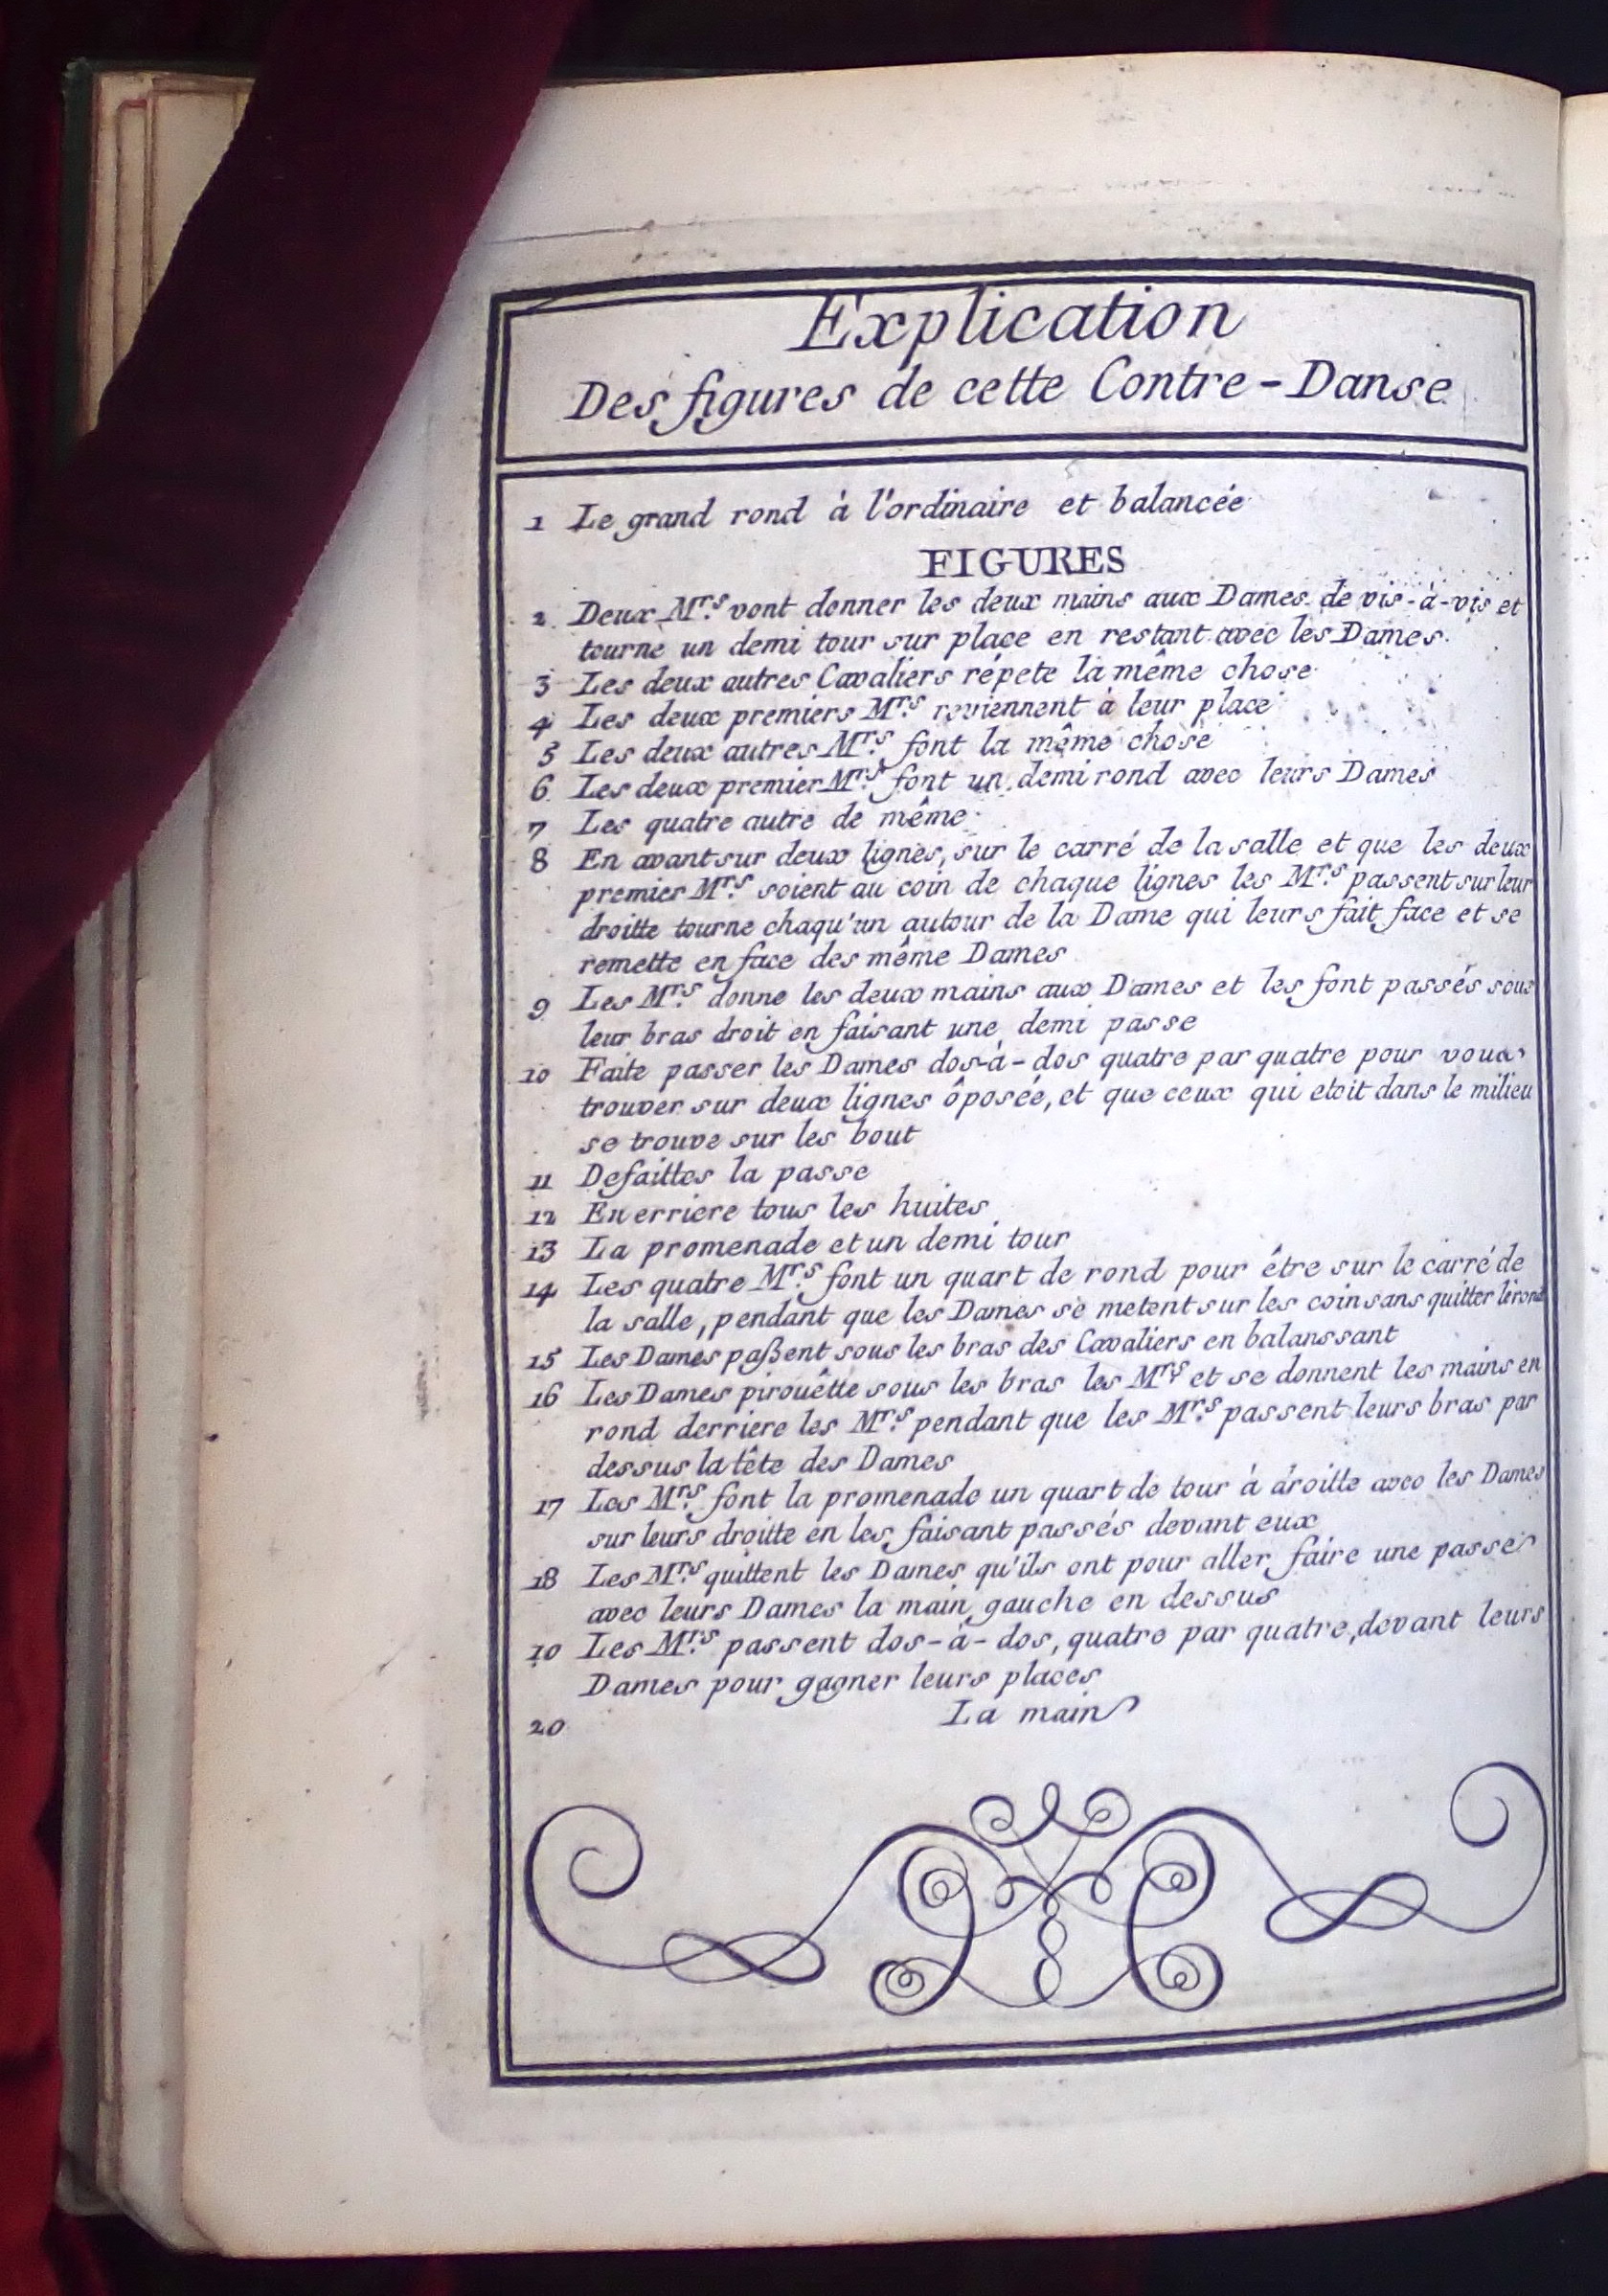 Explication
Des figures de cette Contre-Danse
1 Le grand rond à l'ordinaire et balancée
FIGURES
2. Deux Mrs. vont donner les deux mains aux Dames de vis-à-vis et
tourne un demi tour sur place en restant avec les Dames.
3 Les deux autres Cavaliers répete la même chose
4 Les deux premiers Mrs. reviennent à leur place
5 Les deux autres Mrs. font la même chose
6 Les deux premier Mrs. font un demi rond avec leurs Dames
7 Les quatre autre de même
8 En avant sur deux lignes, sur le carré de la salle et que les deux
premier Mrs. soient au coin de chaque lignes les Mrs. passent sur leur
droitte tourne chaqu'un autour de la Dame qui leurs fait face et se
remette en face des même Dames
9 Les Mrs. donne les deux mains aux Dames et les font passés sous
leur bras droit en faisant une demi passe
10 Faite passer les Dames dos-à-dos quatre par quatre pour vous
trouver sur deux lignes ôposée, et que ceux qui etoit dans le milieu
se trouve sur les bout
11 Defaittes la passe
12 En erriere tous les huites
13 La promenade et un demi tour
14 Les quatre Mrs. font un quart de rond pour être sur le carré de
la salle, pendant que les Dames se metent sur les coin sans quitter le rond
15 Les Dames paßent sous les bras des Cavaliers en balanssant
16 Les Dames pirouêtte sous les bras les Mrs. et se donnent les mains en
rond derriere les Mrs. pendant que les Mrs. passent leurs bras par
dessus la tête des Dames
17 Les Mrs. font la promenade un quart de tour à droitte avec les Dames
sur leurs droitte en les faisant passés devant eux
18 Les Mrs. quittent les Dames qu'ils ont pour aller faire une passe
avec leurs Dames la main gauche en dessus
10 Les Mrs. passent dos-à-dos, quatre par quatre, devant leurs
Dames pour gagner leurs places
20 La main